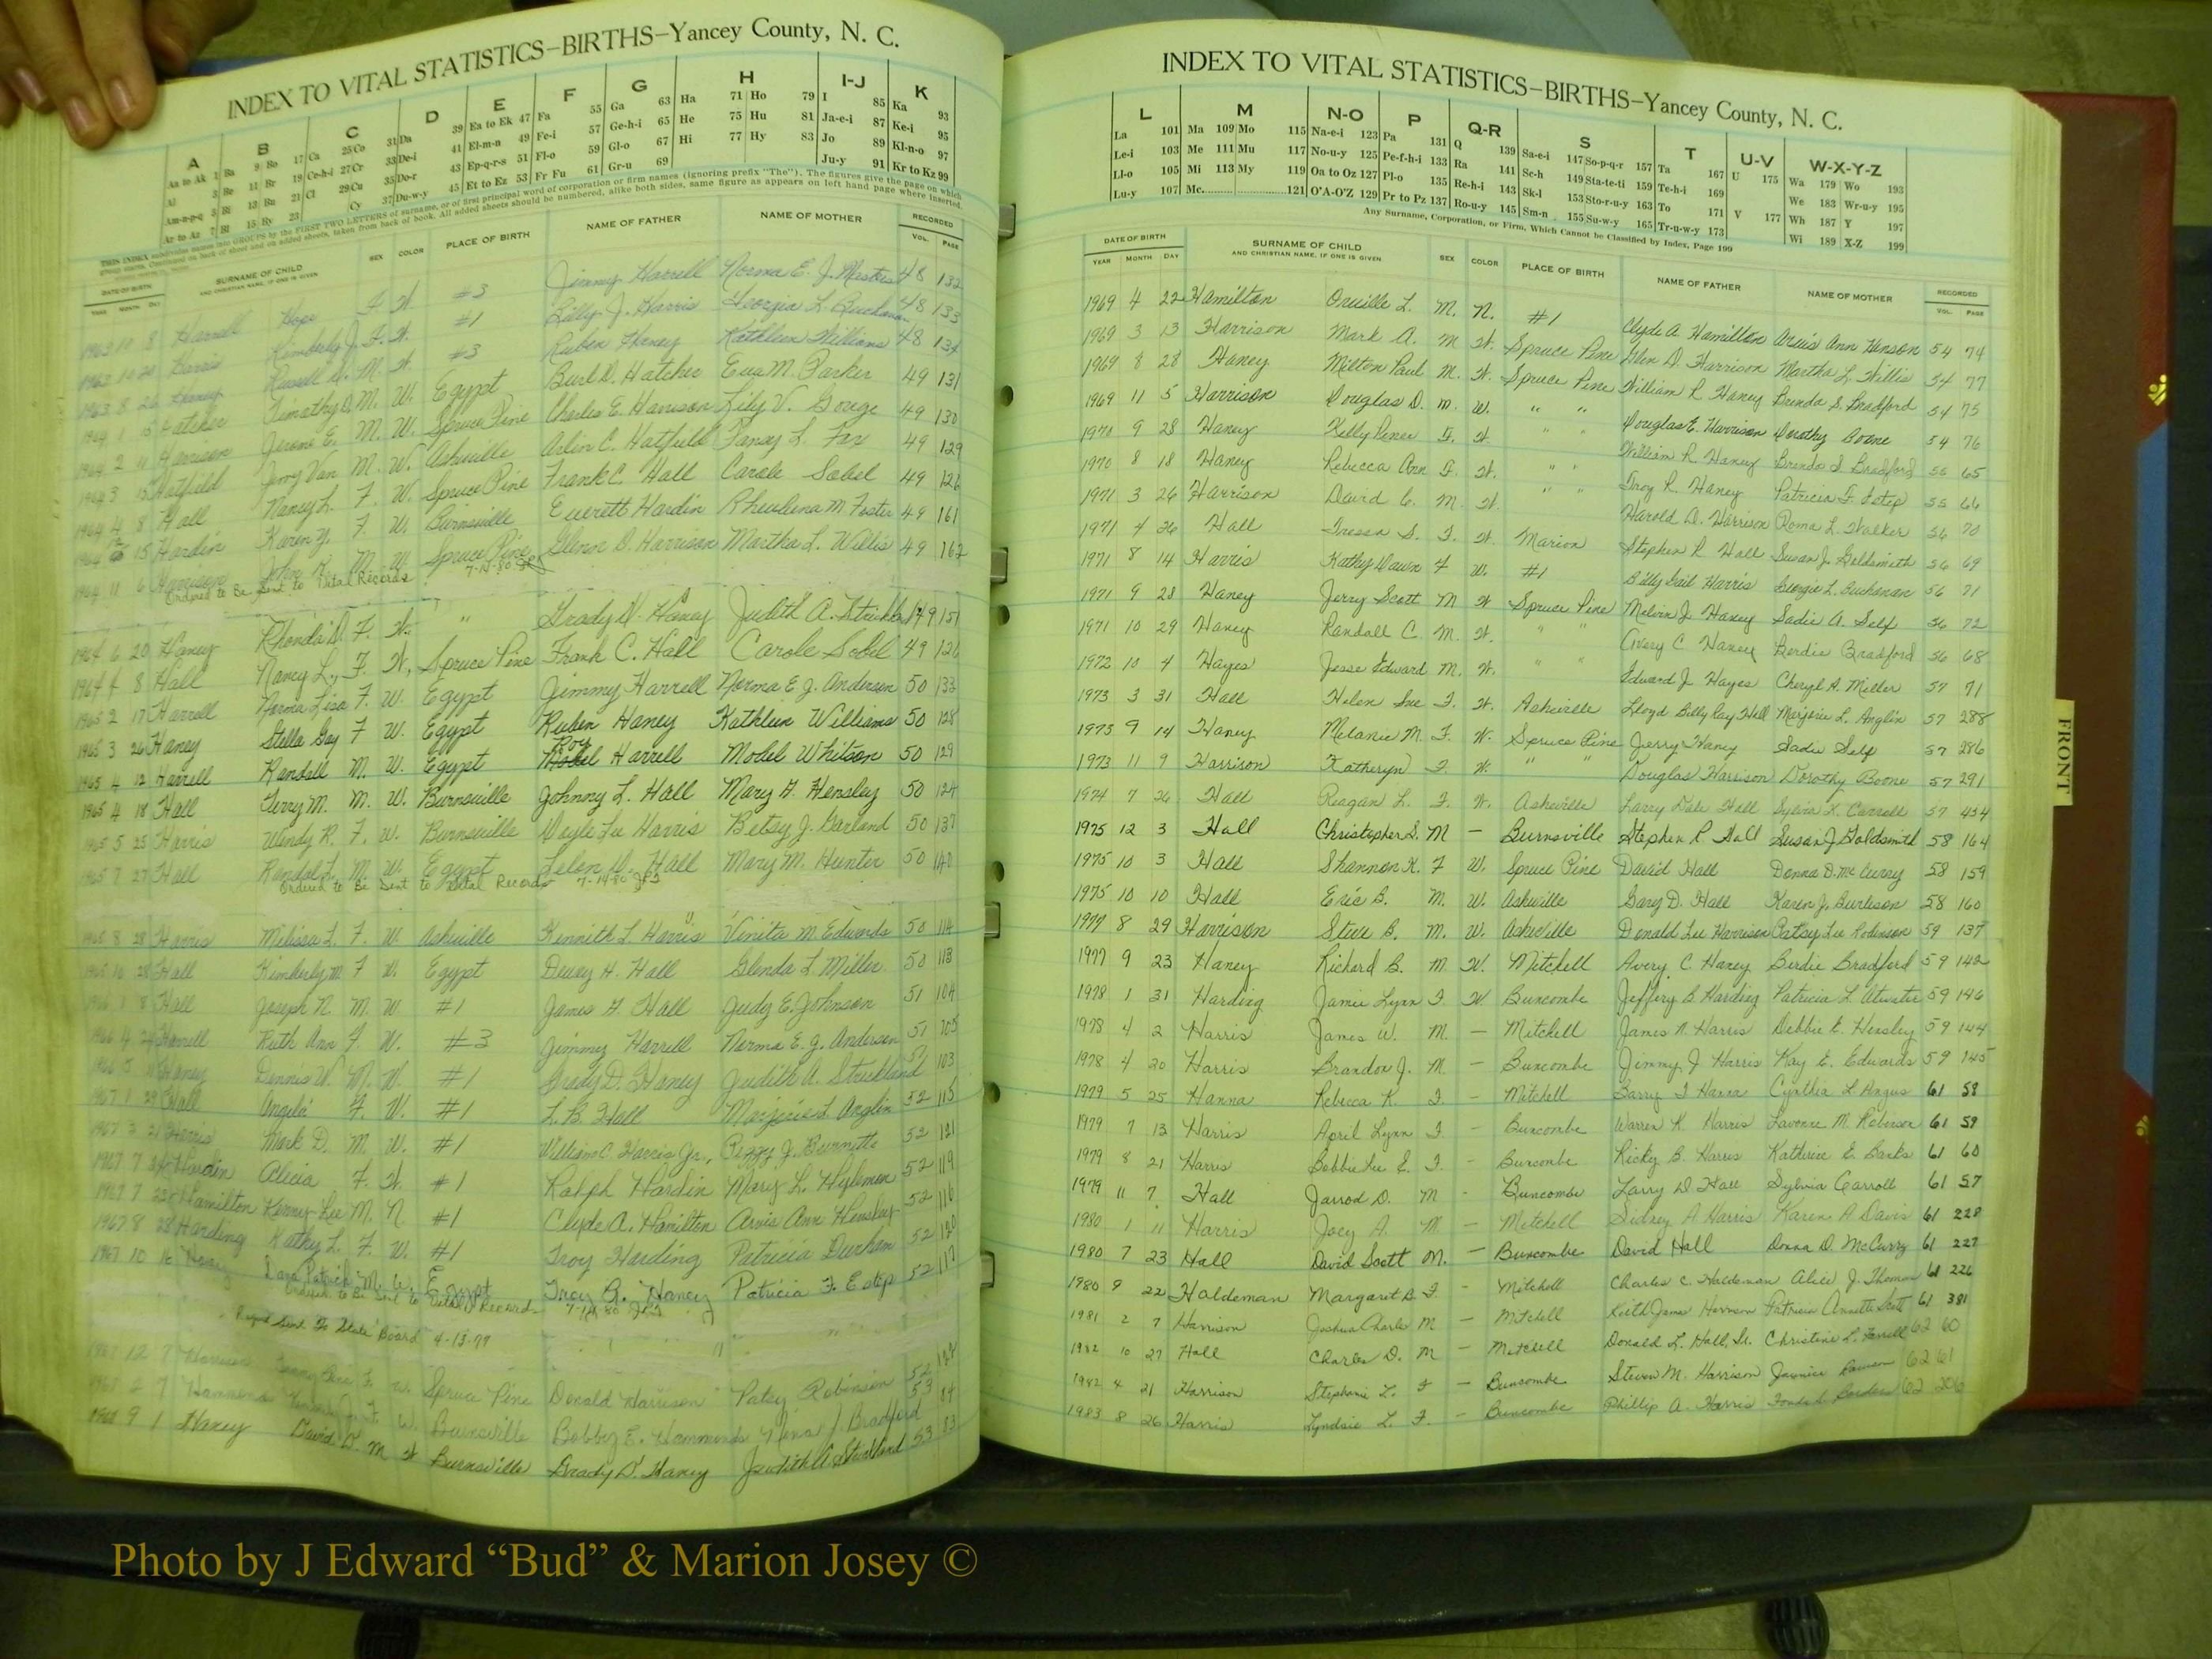 INDEX TO VITAL STATISTICS–BIRTHS–Yancey County, N. C.
A B C D E F G H I-J K
Aa to Ak 1 Ba 9 Bo 17 Ca 25 Co 31 Da 39 Ea to Ek 47 Fa 55 Ga 63 Ha 71 Ho 79 I 85 Ka 93
Al 3 Be 11 Br 19 Ce-h-i 27 Cr 33 De-i 41 El-m-n 49 Fe-i 57 Ge-h-i 65 He 75 Hu 81 Ja-e-i 87 Ke-i 95
Am-n-p-q 5 Bi 13 Bu 21 Cl 29 Cu 35 Do-r 43 Ep-q-r-s 51 Fl-o 59 Gl-o 67 Hi 77 Hy 83 Jo 89 Kl-n-o 97
Ar to Az 7 Bl 15 By 23 Cy 37 Du-w-y 45 Et to Ez 53 Fr Fu 61 Gr-u 69 Ju-y 91 Kr to Kz 99
THIS INDEX subdivides names into GROUPS by the FIRST TWO LETTERS of surname, or of first principal word of corporation or firm names (ignoring prefix "The"). The figures give the page on which
group starts. Continued on back of sheet and on added sheets, taken from back of book. All added sheets should be numbered, alike both sides, same figure as appears on left hand page where inserted.
DATE OF BIRTH SURNAME OF CHILD SEX COLOR PLACE OF BIRTH NAME OF FATHER NAME OF MOTHER RECORDED
YEAR MONTH DAY AND CHRISTIAN NAME, IF ONE IS GIVEN VOL. PAGE
Harrell Hope F W #3 Jimmy Harrell Norma E. J. 48 132
Harris Kimberly J. F. W. #1 Billy J. Harris Georgia L. Buchanan 48 133
1963 8 26 Haney Russell M. W #3 Ruben Haney Kathleen Williams 48 134
1964 1 15 Hatcher Timothy D. M. W. Egypt Burl D. Hatcher Eva M. Parker 49 131
1964 2 11 Harrison Jerome E. M. W. Spruce Pine Charles E. Harrison Lily V. Gouge 49 130
1964 3 15 Hatfield Jerry Van M. W. Asheville Arlin C. Hatfield Nancy L. Fox 49 129
1964 4 8 Hall Nancy L. F. W. Spruce Pine Frank C. Hall Carole Sobel 49 126
1964 15 Hardin Karen Y. F. W. Burnsville Everett Hardin Rheulena M. Foster 49 161
1964 11 6 Harrison John K. M. W. Spruce Pine Glenn D. Harrison Martha L. Willis 49 162
Ordered to Be Sent to Vital Records 7-14-80
1964 6 20 Haney Rhonda D. F. W. " Grady D. Haney Judith A. 49 151
1964 4 8 Hall Nancy L. F. W. Spruce Pine Frank C. Hall Carole Sobel 49 126
1965 2 17 Harrell Norma Lisa F. W. Egypt Jimmy Harrell Norma E. J. Anderson 50 133
1965 3 26 Haney Stella Gay F W. Egypt Ruben Haney Kathleen Williams 50 128
1965 4 12 Harrell Randall M. W. Egypt Roy Harrell Mabel Whitson 50 129
1965 4 18 Hall Terry M. M. W. Burnsville Johnny L. Hall Mary F. Hensley 50 124
1965 5 25 Harris Wendy R. F. W. Burnsville Doyle Lee Harris Betsy J. Garland 50 137
1965 7 27 Hall Randal L. M. W. Egypt Zelon D. Hall Mary M. Hunter 50 140
Ordered to Be Sent to Vital Records 7-14-80
1965 8 28 Harris Melissa L. F. W. Asheville Kennith L. Harris Vinita M. Edwards 50 114
1965 10 28 Hall Kimberly M. F W. Egypt Dewey H. Hall Glenda L. Miller 50 113
1966 1 8 Hall Joseph N. M. W #1 James H. Hall Judy E. Johnson 51 104
1966 4 24 Harrell Ruth Ann F. W. #3 Jimmy Harrell Norma E. J. Anderson 51 105
1966 5 Haney Dennis W. M. W. #1 Grady D. Haney Judith A. Strickland 51 103
1967 1 29 Hall Angela F. W. #1 L. B. Hall Marjorie L. Anglin 52 115
1967 3 21 Harris Mark D. M. W. #1 William C. Harris Jr. Peggy J. Burnette 52 121
1967 7 Hardin Alicia F. W. #1 Ralph Hardin Mary L. Hylemon 52 119
1967 7 Hamilton Kenny Lee M. N #1 Clyde A. Hamilton Arvis Ann Hensley 52 116
1967 8 28 Harding Kathy L. F. W. #1 Troy Harding Patricia Durham 52 120
1967 10 16 Haney Patrick M. W. Egypt Troy R. Haney Patricia F. Estep 52 117
Ordered to Be Sent to Vital Records 7-14-80
Sent To State Board 4-13-79
12 7 Harrison F. W. Spruce Pine Donald Harrison Patsy Robinson 52 122
1968 2 7 Hammonds F. W. Burnsville Bobby E. Hammonds J. Bradford 53 84
1968 9 1 Haney David D. M W Burnsville Grady D. Haney Judith A Strickland 53 83
INDEX TO VITAL STATISTICS–BIRTHS–Yancey County, N. C.
L M N-O P Q-R S T U-V W-X-Y-Z
La 101 Ma 109 Mo 115 Na-e-i 123 Pa 131 Q 139 Sa-e-i 147 So-p-q-r 157 Ta 167 U 175 Wa 179 Wo 193
Le-i 103 Me 111 Mu 117 No-u-y 125 Pe-f-h-i 133 Ra 141 Sc-h 149 Sta-te-ti 159 Te-h-i 169 We 183 Wr-u-y 195
Ll-o 105 Mi 113 My 119 Oa to Oz 127 Pl-o 135 Re-h-i 143 Sk-l 153 Sto-r-u-y 163 To 171 V 177 Wh 187 Y 197
Lu-y 107 Mc 121 O'A-O'Z 129 Pr to Pz 137 Ro-u-y 145 Sm-n 155 Su-w-y 165 Tr-u-w-y 173 Wi 189 X-Z 199
Any Surname, Corporation, or Firm, Which Cannot be Classified by Index, Page 199
DATE OF BIRTH SURNAME OF CHILD SEX COLOR PLACE OF BIRTH NAME OF FATHER NAME OF MOTHER RECORDED
YEAR MONTH DAY AND CHRISTIAN NAME, IF ONE IS GIVEN VOL. PAGE
1969 4 22 Hamilton Orville L. M. N. #1 Clyde A. Hamilton Arvis Ann Henson 54 74
1969 3 13 Harrison Mark A. M W. Spruce Pine Glen D. Harrison Martha L. Willis 54 77
1969 8 28 Haney Milton Paul M. W. Spruce Pine William R Haney Brenda S. Bradford 54 75
1969 11 5 Harrison Douglas D. M. W. " " Douglas E. Harrison Dorothy Boone 54 76
1970 9 28 Haney Kelly Renee F. W. " " William R. Haney Brenda S. Bradford 55 65
1970 8 18 Haney Rebecca Ann F. W. " " Troy R. Haney Patricia F. Estep 55 66
1971 3 26 Harrison David C. M. W. Harold D. Harrison Roma L. Walker 56 70
1971 4 26 Hall Tressa S. F. W. Marion Stephen R. Hall Susan J. Goldsmith 56 69
1971 8 14 Harris Kathy Dawn F W. #1 Billy Gail Harris Georgie L. Buchanan 56 71
1971 9 28 Haney Jerry Scott M W Spruce Pine Melvin J. Haney Sadie A. Self 56 72
1971 10 29 Haney Randall C. M. W. " " Avery C Haney Berdie Bradford 56 68
1972 10 4 Hayes Jesse Edward M. W. " " Edward J. Hayes Cheryl A. Miller 57 71
1973 3 31 Hall Helen Sue F. W. Asheville Lloyd Billy Ray Hall Marjorie L. Anglin 57 288
1973 9 14 Haney Melanie M. F. W. Spruce Pine Jerry Haney Sadie Self 57 286
1973 11 9 Harrison Katheryn F. W. " " Douglas Harrison Dorothy Boone 57 291
1974 7 26 Hall Reagan L. F. W. Asheville Larry Dale Hall Sylvia K. Carroll 57 454
1975 12 3 Hall Christopher S. M – Burnsville Stephen R. Hall Susan J Goldsmith 58 164
1975 10 3 Hall Shannon K. F W. Spruce Pine David Hall Donna D. McCurry 58 159
1975 10 10 Hall Eric B. M. W. Asheville Gary D. Hall Karen J. Burleson 58 160
1977 8 29 Harrison Steve B. M. W. Asheville Donald Lee Harrison Patsy Lee Robinson 59 137
1977 9 23 Haney Richard B. M W. Mitchell Avery C Haney Berdie Bradford 59 142
1978 1 31 Harding Jamie Lynn F W. Buncombe Jeffery B. Harding Patricia L. Atwater 59 146
1978 4 2 Harris James W. M. – Mitchell James N. Harris Debbie E. Hensley 59 144
1978 4 20 Harris Brandon J. M – Buncombe Jimmy J Harris Kay E. Edwards 59 145
1979 5 25 Hanna Rebecca K. F. – Mitchell Barry T Hanna Cynthia L. Angus 61 58
1979 7 13 Harris April Lynn F – Buncombe Warren K Harris Lavonne M. Roberson 61 59
1979 8 21 Harris Bobbie Lee E. F. – Buncombe Ricky B. Harris Katherine E. Banks 61 60
1979 11 7 Hall Jarrod D. M – Buncombe Larry D Hall Sylvia Carroll 61 57
1980 1 11 Harris Joey A. M – Mitchell Sidney A Harris Karen A Davis 61 228
1980 7 23 Hall David Scott M. – Buncombe David Hall Donna D. McCurry 61 227
1980 9 22 Haldeman Margaret B. F – Mitchell Charles C. Haldeman Alice J. Thomas 61 226
1981 2 7 Harrison Joshua Charle M – Mitchell Keith James Harrison Patricia Annette Scott 61 381
1982 10 27 Hall Charles D. M – Mitchell Donald L. Hall, Sr. Christine L. 62 60
1982 4 21 Harrison Stephanie L. F – Buncombe Steven M. Harrison 62 61
1983 8 26 Harris Lyndsie L. F. – Buncombe Phillip A. Harris 62 206
FRONT
Photo by J Edward “Bud” & Marion Josey ©